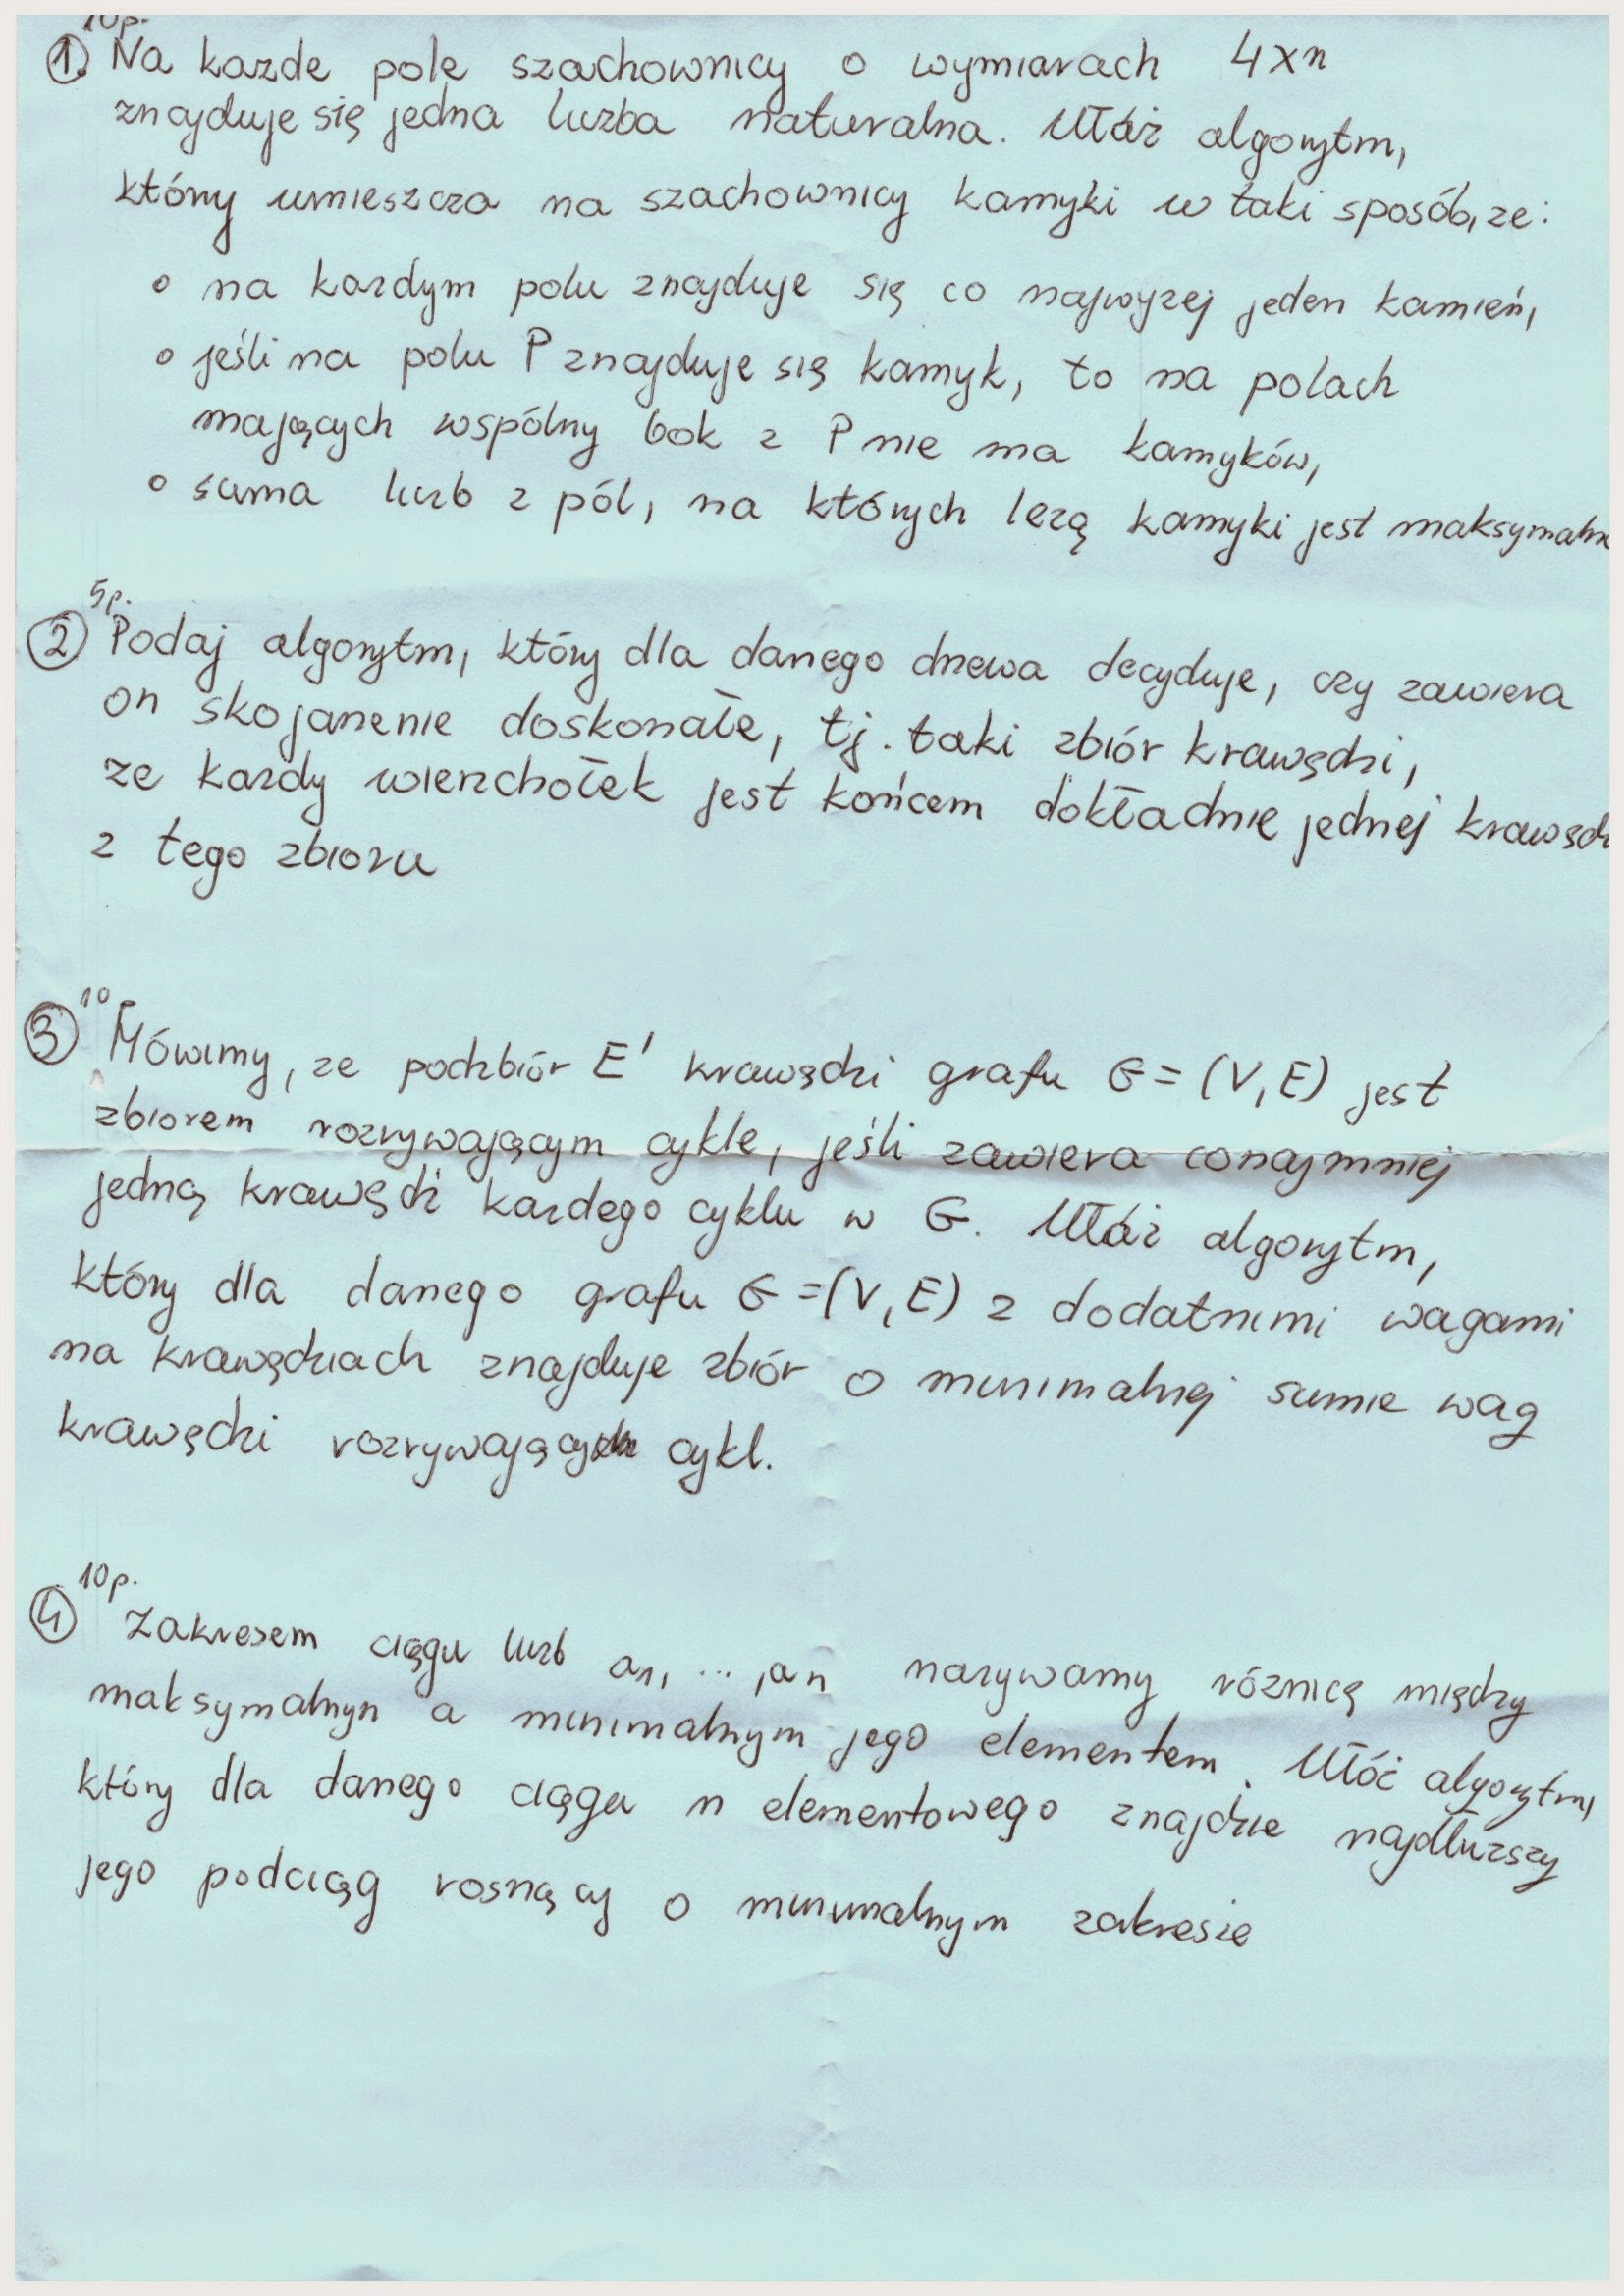 10p.
① Na każde pole szachownicy o wymiarach 4xn
znajduje się jedna liczba naturalna. Ułóż algorytm,
który umieszcza na szachownicy kamyki w taki sposób, że:
o na każdym polu znajduje się co najwyżej jeden kamień,
o jeśli na polu P znajduje się kamyk, to na polach
mających wspólny bok z P nie ma kamyków,
o suma liczb z pól, na których leżą kamyki jest maksymaln
5p.
② Podaj algorytm, który dla danego drzewa decyduje, czy zawiera
on skojarzenie doskonałe, tj. taki zbiór krawędzi,
że każdy wierzchołek jest końcem dokładnie jednej krawęd
z tego zbioru
10
③ Mówimy, że podzbiór E' krawędzi grafu G=(V,E) jest
zbiorem rozrywającym cykle, jeśli zawiera conajmniej
jedną krawędź każdego cyklu w G. Ułóż algorytm,
który dla danego grafu G=(V,E) z dodatnimi wagami
na krawędziach znajduje zbiór o minimalnej sumie wag
krawędzi rozrywających cykl.
10p.
④ Zakresem ciągu liczb a1, ... ,an nazywamy różnicę między
maksymalnyn a minimalnym jego elementem. Ułóż algorytm,
który dla danego ciągu n elementowego znajdzie najdłuższy
jego podciąg rosnący o minimalnym zakresie